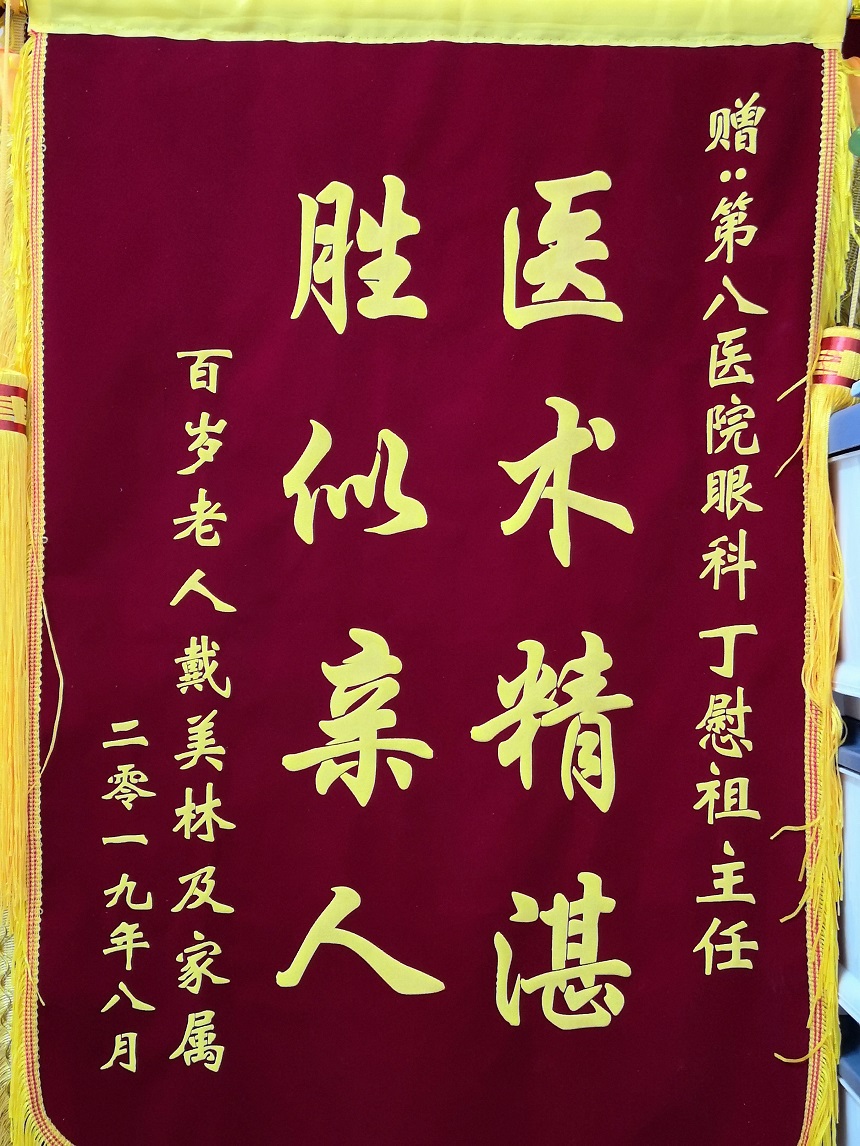 赠:第八医院眼科丁慰祖主任
医术精湛
胜似亲人
百岁老人戴美林及家属
二零一九年八月